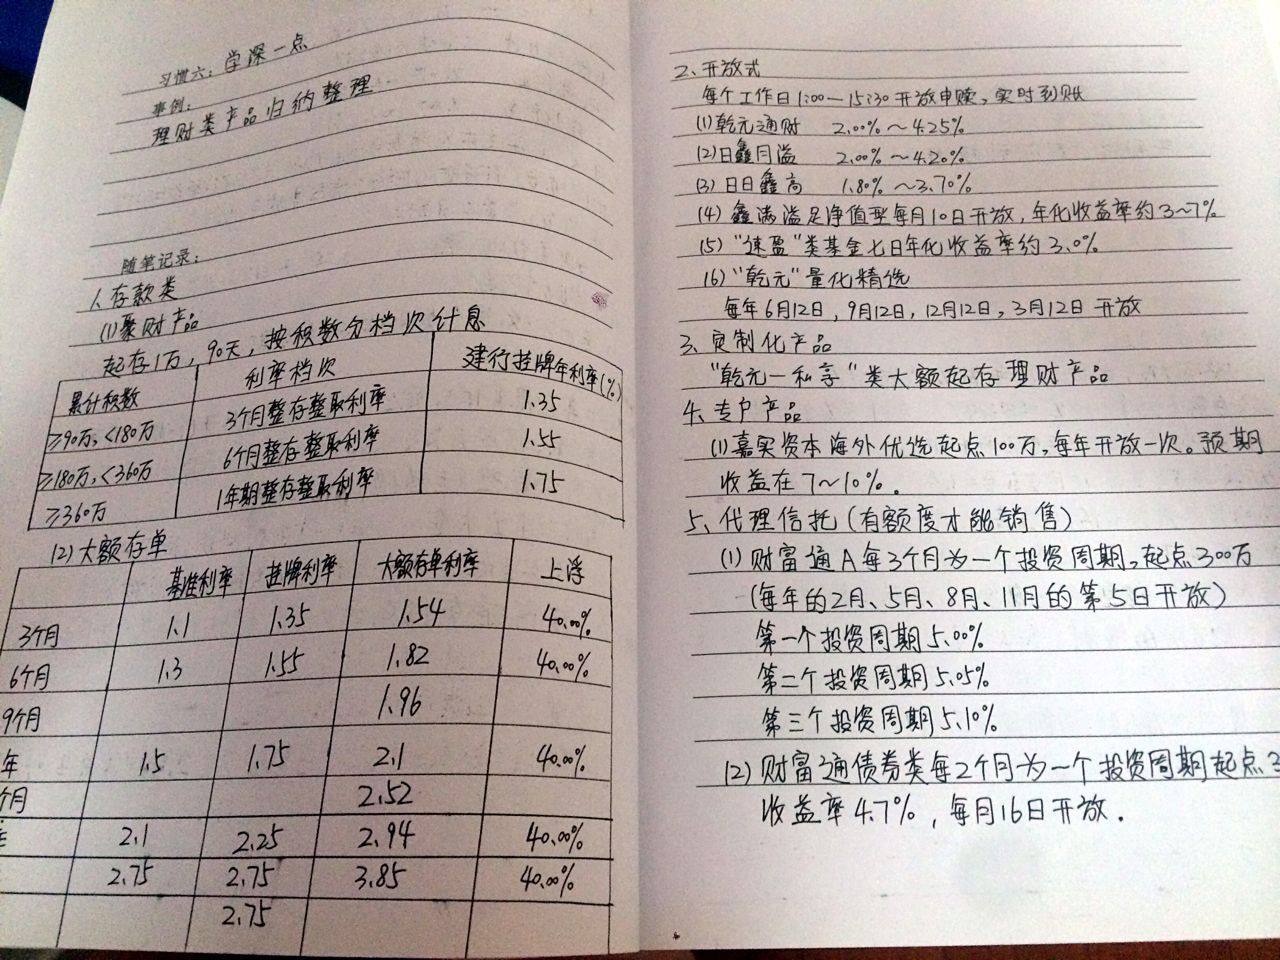 习惯六：学深一点
事例：
理财类产品归纳整理
随笔记录：
1、存款类
(1)聚财产品
起存1万，90天，按积数分档次计息
累计积数 利率档次 建行挂牌年利率(%)
≥90万，<180万 3个月整存整取利率 1.35
≥180万，<360万 6个月整存整取利率 1.55
≥360万 1年期整存整取利率 1.75
(2)大额存单
基准利率 挂牌利率 大额存单利率 上浮
3个月 1.1 1.35 1.54 40.00%
6个月 1.3 1.55 1.82 40.00%
9个月 1.96
年 1.5 1.75 2.1 40.00%
个月 2.52
2.1 2.25 2.94 40.00%
2.75 2.75 3.85 40.00%
2.75
2、开放式
每个工作日1:00—15:30开放申赎，实时到账
(1)乾元通财 2.00%～4.25%
(2)日鑫月溢 2.00%～4.20%
(3)日日鑫高 1.80%～3.70%
(4)鑫满溢足净值型每月10日开放，年化收益率约3~7%
(5)“速盈”类基金七日年化收益率约3.0%
(6)“乾元”量化精选
每年6月12日，9月12日，12月12日，3月12日开放
3、定制化产品
“乾元—私享”类大额起存理财产品
4、专户产品
(1)嘉实资本海外优选起点100万，每年开放一次。预期
收益在7～10%。
5、代理信托(有额度才能销售)
(1)财富通A每3个月为一个投资周期，起点300万
(每年的2月、5月、8月、11月的第5日开放)
第一个投资周期5.00%
第二个投资周期5.05%
第三个投资周期5.10%
(2)财富通债券类每2个月为一个投资周期起点3
收益率4.7%，每月16日开放.